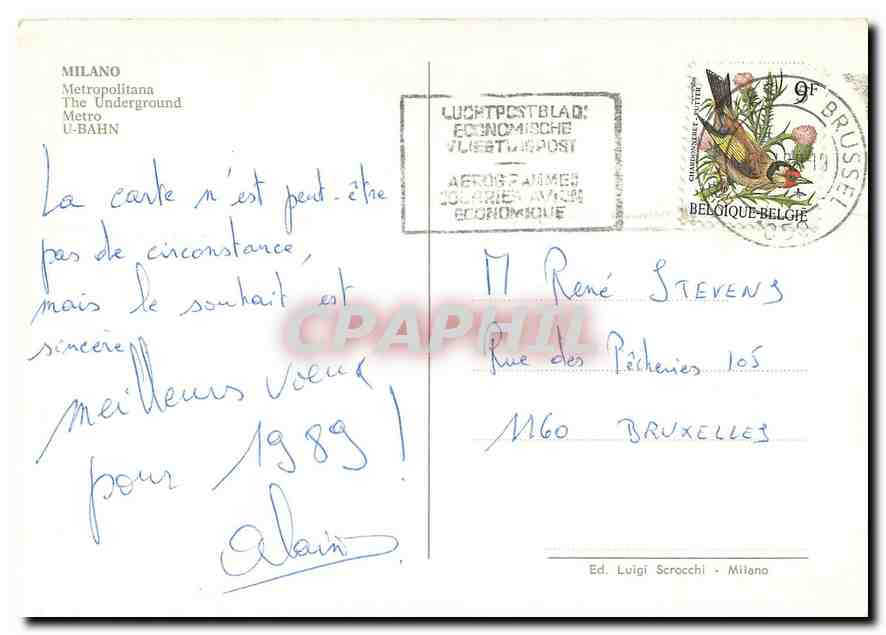 MILANO
Metropolitana
The Underground
Metro
U-BAHN
La carte n'est peut-être
pas de circonstance,
mais le souhait est
sincère
meilleurs voeux
pour 1989 !
Alain
LUCHTPOSTBLAD:
ECONOMISCHE
VLIEGTUIGPOST
AEROGRAMMES
COURRIER-AVION
ECONOMIQUE
9F
CHARDONNERET-PUTTER
BELGIQUE-BELGIË
BRUSSEL
M René STEVENS
Rue des Pêcheries 105
1160 BRUXELLES
CPAPHIL
Ed. Luigi Scrocchi - Milano